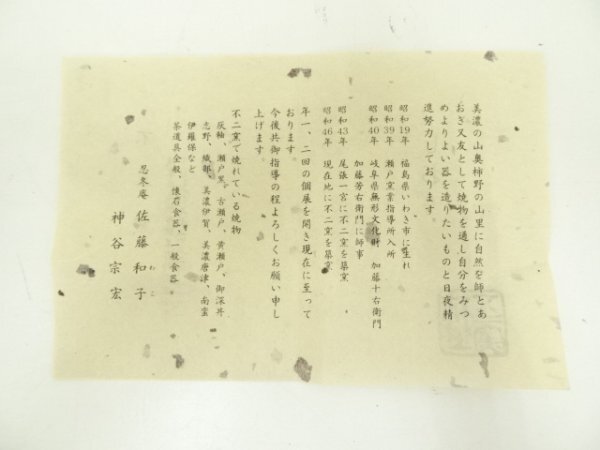 美濃の山奥柿野の山里に自然を師とあ
おぎ又友として焼物を通し自分をみつ
めよりよい器を造りたいものと日夜精
進努力しております。
昭和19年 福島県いわき市に生れ
昭和39年 瀬戸窯業指導所入所
昭和40年 岐阜県無形文化財 加藤十右衛門
加藤芳右衛門に師事
昭和43年 尾張一宮に不二窯を築窯
昭和46年 現在地に不二窯を築窯
年一、二回の個展を開き現在に至って
おります。
今後共御指導の程よろしくお願い申し
上げます。
不二窯で焼れている焼物
灰釉、瀬戸黒、古瀬戸、黄瀬戸、御深井
志野、織部、美濃伊賀、美濃唐津、南蛮
伊羅保など
茶道具全般、懐石食器、一般食器
忍冬庵 佐藤和子
神谷宗宏